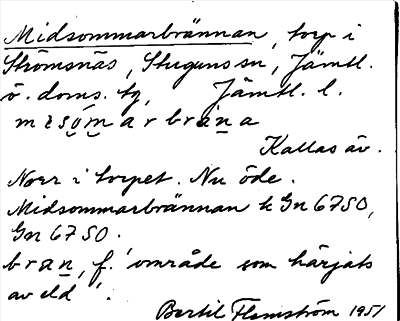 Midsommarbrännan, torp i
Strömsnäs, Stuguns sn, Jämtl.
ö. doms. tg, Jämtl. l.
Kallas äv.
Noer i torpet. Nu öde.
Midsommarbrännan k Gn 6750,
Gn 6750.
bran, f. 'område som härjats
av eld'.
Bertil Flemström 1951